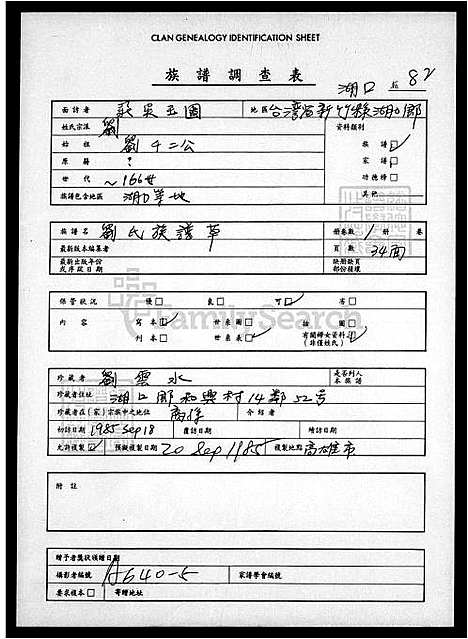 CLAN GENEALOGY IDENTIFICATION SHEET
族譜調查表
湖口 82
面訪者 莊吳玉圖 地區 台灣省新竹縣湖口鄉
姓氏宗派 劉 資料類別
始祖 劉千二公 族譜
原籍 ? 家譜
世代 ~166世 功德榜
族譜包含地區 湖口等地 其他
族譜名 劉氏族譜草 册卷數 1 册 卷
最新版本編纂者 頁數 34面
最新出版年份或序跋日期 缺册缺頁部份種壞
保管狀況 優 良 可 劣
內容 寫本 世系圖 插圖
刊本 世系表 有關婦女資料(非僅姓氏)
珍藏者 劉雲水 是否列入本族譜
珍藏者住址 湖口鄉和興村14鄰52号
珍藏者在(家)宗族中之地位 裔孫 介紹者
初訪日期 1985 Sep 18 覆訪日期 續訪日期
允許複製 擬複製日期 20 Sep 1985 複製地點 高雄市
附註
贈予者獎狀頒贈日期
攝影者編號 A640-5 家譜學會編號
要求複本 寄贈地址
FamilySearch